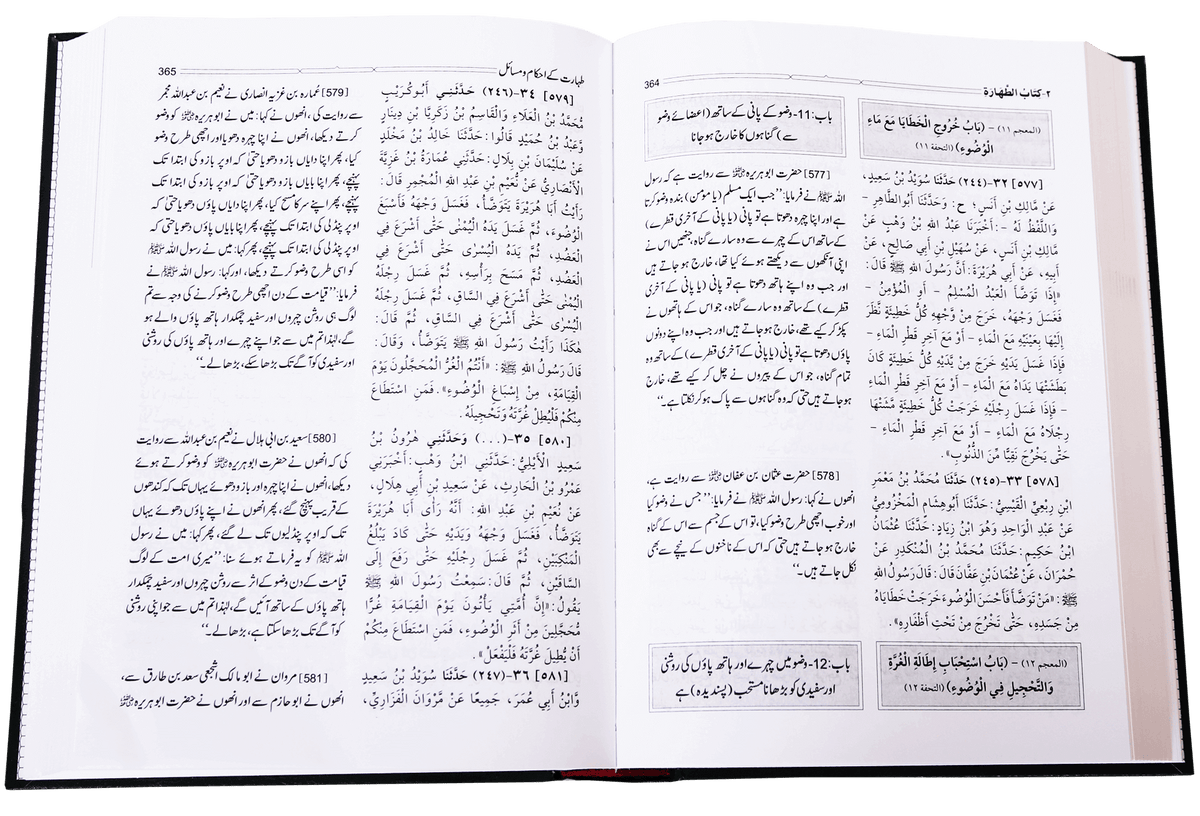 364
٢-كتابُ الطَّهارَة
(المعجم ١١) - (بَابُ خُرُوجِ الْخَطَايَا مَعَ مَاءِ
الْوُضُوءِ) (التحفة ١١)
[٥٧٧] ٣٢-(٢٤٤) حَدَّثَنَا سُوَيْدُ بْنُ سَعِيدٍ،
عَنْ مَالِكِ بْنِ أَنَسٍ؛ ح: وَحَدَّثَنَا أَبُو الطَّاهِرِ -
وَاللَّفْظُ لَهُ -: أَخْبَرَنَا عَبْدُ اللهِ بْنُ وَهْبٍ عَنْ
مَالِكِ بْنِ أَنَسٍ، عَنْ سُهَيْلِ بْنِ أَبِي صَالِحٍ، عَنْ
أَبِيهِ، عَنْ أَبِي هُرَيْرَةَ: أَنَّ رَسُولَ اللهِ ﷺ قَالَ:
«إِذَا تَوَضَّأَ الْعَبْدُ الْمُسْلِمُ - أَوِ الْمُؤْمِنُ -
فَغَسَلَ وَجْهَهُ، خَرَجَ مِنْ وَّجْهِهِ كُلُّ خَطِيئَةٍ نَّظَرَ
إِلَيْهَا بِعَيْنَيْهِ مَعَ الْمَاءِ - أَوْ مَعَ آخِرِ قَطْرِ الْمَاءِ -
فَإِذَا غَسَلَ يَدَيْهِ خَرَجَ مِنْ يَّدَيْهِ كُلُّ خَطِيئَةٍ كَانَ
بَطَشَتْهَا يَدَاهُ مَعَ الْمَاءِ - أَوْ مَعَ آخِرِ قَطْرِ الْمَاءِ
- فَإِذَا غَسَلَ رِجْلَيْهِ خَرَجَتْ كُلُّ خَطِيئَةٍ مَّشَتْهَا
رِجْلَاهُ مَعَ الْمَاءِ - أَوْ مَعَ آخِرِ قَطْرِ الْمَاءِ -
حَتَّى يَخْرُجَ نَقِيًّا مِّنَ الذُّنُوبِ».
[٥٧٨] ٣٣-(٢٤٥) حَدَّثَنَا مُحَمَّدُ بْنُ مَعْمَرِ
ابْنِ رِبْعِيٍّ الْقَيْسِيُّ: حَدَّثَنَا أَبُو هِشَامٍ الْمَخْزُومِيُّ
عَنْ عَبْدِ الْوَاحِدِ وَهُوَ ابْنُ زِيَادٍ: حَدَّثَنَا عُثْمَانُ
ابْنُ حَكِيمٍ: حَدَّثَنَا مُحَمَّدُ بْنُ الْمُنْكَدِرِ عَنْ
حُمْرَانَ، عَنْ عُثْمَانَ بْنِ عَفَّانَ قَالَ: قَالَ رَسُولُ اللهِ
ﷺ: «مَنْ تَوَضَّأَ فَأَحْسَنَ الْوُضُوءَ خَرَجَتْ خَطَايَاهُ
مِنْ جَسَدِهِ، حَتَّى تَخْرُجَ مِنْ تَحْتِ أَظْفَارِهِ».
(المعجم ١٢) - (بَابُ اسْتِحْبَابِ إِطَالَةِ الْغُرَّةِ
وَالتَّحْجِيلِ فِي الْوُضُوءِ) (التحفة ١٢)
باب:11-وضو کے پانی کے ساتھ (اعضائے وضو
سے) گناہوں کا خارج ہو جانا
[577] حضرت ابوہریرہ ؓ سے روایت ہے کہ رسول
اللہ ﷺ نے فرمایا: ’’جب ایک مسلم (یا مومن) بندہ وضو کرتا
ہے اور اپنا چہرہ دھوتا ہے تو پانی (یا پانی کے آخری قطرے)
کے ساتھ اس کے چہرے سے وہ سارے گناہ، جنھیں اس نے
اپنی آنکھوں سے دیکھتے ہوئے کیا تھا، خارج ہو جاتے ہیں
اور جب وہ اپنے ہاتھ دھوتا ہے تو پانی (یا پانی کے آخری
قطرے) کے ساتھ وہ سارے گناہ، جو اس کے ہاتھوں نے
پکڑ کر کیے تھے، خارج ہو جاتے ہیں اور جب وہ اپنے دونوں
پاؤں دھوتا ہے تو پانی (یا پانی کے آخری قطرے) کے ساتھ وہ
تمام گناہ، جو اس کے پیروں نے چل کر کیے تھے، خارج
ہو جاتے ہیں حتی کہ وہ گناہوں سے پاک ہو کر نکلتا ہے۔‘‘
[578] حضرت عثمان بن عفان ؓ سے روایت ہے،
انھوں نے کہا: رسول اللہ ﷺ نے فرمایا: ’’جس نے وضو کیا
اور خوب اچھی طرح وضو کیا، تو اس کے جسم سے اس کے گناہ
خارج ہو جاتے ہیں حتی کہ اس کے ناخنوں کے نیچے سے بھی
نکل جاتے ہیں۔‘‘
باب:12-وضو میں چہرے اور ہاتھ پاؤں کی روشنی
اور سفیدی کو بڑھانا مستحب (پسندیدہ) ہے
طہارت کے احکام و مسائل
365
[٥٧٩] ٣٤-(٢٤٦) حَدَّثَنِي أَبُو كُرَيْبٍ
مُّحَمَّدُ بْنُ الْعَلَاءِ وَالْقَاسِمُ بْنُ زَكَرِيَّا بْنِ دِينَارٍ
وَّعَبْدُ بْنُ حُمَيْدٍ قَالُوا: حَدَّثَنَا خَالِدُ بْنُ مَخْلَدٍ
عَنْ سُلَيْمَانَ بْنِ بِلَالٍ: حَدَّثَنِي عُمَارَةُ بْنُ غَزِيَّةَ
الْأَنْصَارِيُّ عَنْ نُّعَيْمِ بْنِ عَبْدِ اللهِ الْمُجْمِرِ قَالَ:
رَأَيْتُ أَبَا هُرَيْرَةَ يَتَوَضَّأُ، فَغَسَلَ وَجْهَهُ فَأَسْبَغَ
الْوُضُوءَ، ثُمَّ غَسَلَ يَدَهُ الْيُمْنَى حَتَّى أَشْرَعَ فِي
الْعَضُدِ، ثُمَّ يَدَهُ الْيُسْرَى حَتَّى أَشْرَعَ فِي
الْعَضُدِ، ثُمَّ مَسَحَ بِرَأْسِهِ، ثُمَّ غَسَلَ رِجْلَهُ
الْيُمْنَى حَتَّى أَشْرَعَ فِي السَّاقِ، ثُمَّ غَسَلَ رِجْلَهُ
الْيُسْرَى حَتَّى أَشْرَعَ فِي السَّاقِ، ثُمَّ قَالَ:
هٰكَذَا رَأَيْتُ رَسُولَ اللهِ ﷺ يَتَوَضَّأُ، وَقَالَ:
قَالَ رَسُولُ اللهِ ﷺ: «أَنْتُمُ الْغُرُّ الْمُحَجَّلُونَ يَوْمَ
الْقِيَامَةِ، مِنْ إِسْبَاغِ الْوُضُوءِ». فَمَنِ اسْتَطَاعَ
مِنْكُمْ فَلْيُطِلْ غُرَّتَهُ وَتَحْجِيلَهُ.
[٥٨٠] ٣٥-(...) وَحَدَّثَنِي هٰرُونُ بْنُ
سَعِيدٍ الْأَيْلِيُّ: حَدَّثَنِي ابْنُ وَهْبٍ: أَخْبَرَنِي
عَمْرُو بْنُ الْحَارِثِ، عَنْ سَعِيدِ بْنِ أَبِي هِلَالٍ،
عَنْ نُعَيْمِ بْنِ عَبْدِ اللهِ: أَنَّهُ رَأَى أَبَا هُرَيْرَةَ
يَتَوَضَّأُ، فَغَسَلَ وَجْهَهُ وَيَدَيْهِ حَتَّى كَادَ يَبْلُغُ
الْمَنْكِبَيْنِ، ثُمَّ غَسَلَ رِجْلَيْهِ حَتَّى رَفَعَ إِلَى
السَّاقَيْنِ، ثُمَّ قَالَ: سَمِعْتُ رَسُولَ اللهِ ﷺ
يَقُولُ: «إِنَّ أُمَّتِي يَأْتُونَ يَوْمَ الْقِيَامَةِ غُرًّا
مُّحَجَّلِينَ مِنْ أَثَرِ الْوُضُوءِ، فَمَنِ اسْتَطَاعَ مِنْكُمْ
أَنْ يُّطِيلَ غُرَّتَهُ فَلْيَفْعَلْ».
[٥٨١] ٣٦-(٢٤٧) حَدَّثَنَا سُوَيْدُ بْنُ سَعِيدٍ
وَّابْنُ أَبِي عُمَرَ، جَمِيعًا عَنْ مَرْوَانَ الْفَزَارِيِّ،
[579] عمارہ بن غزیہ انصاری نے نعیم بن عبداللہ مجمر
سے روایت کی، انھوں نے کہا: میں نے ابوہریرہ ؓ کو وضو
کرتے دیکھا، انھوں نے اپنا چہرہ دھویا اور اچھی طرح وضو
کیا، پھر اپنا دایاں بازو دھویا حتی کہ اوپر بازو کی ابتدا تک
پہنچے، پھر اپنا بایاں بازو دھویا حتی کہ اوپر بازو کی ابتدا تک
پہنچے، پھر اپنے سر کا مسح کیا، پھر اپنا دایاں پاؤں دھویا حتی کہ
اوپر پنڈلی کی ابتدا تک پہنچے، پھر اپنا بایاں پاؤں دھویا حتی کہ
اوپر پنڈلی کی ابتدا تک پہنچے، پھر کہا: میں نے رسول اللہ ﷺ
کو اسی طرح وضو کرتے دیکھا، اور کہا: رسول اللہ ﷺ نے
فرمایا: ’’قیامت کے دن اچھی طرح وضو کرنے کی وجہ سے تم
لوگ ہی روشن چہروں اور سفید چمکدار ہاتھ پاؤں والے ہو
گے، لہٰذا تم میں سے جو اپنے چہرے اور ہاتھ پاؤں کی روشنی
اور سفیدی کو آگے تک بڑھا سکے، بڑھا لے۔‘‘
[580] سعید بن ابی ہلال نے نعیم بن عبداللہ سے روایت
کی کہ انھوں نے حضرت ابوہریرہ ؓ کو وضو کرتے ہوئے
دیکھا، انھوں نے اپنا چہرہ اور بازو دھوئے یہاں تک کہ کندھوں
کے قریب پہنچ گئے، پھر انھوں نے اپنے پاؤں دھوئے یہاں
تک کہ اوپر پنڈلیوں تک لے گئے، پھر کہا: میں نے رسول
اللہ ﷺ کو یہ فرماتے ہوئے سنا: ’’میری امت کے لوگ
قیامت کے دن وضو کے اثر سے روشن چہروں اور سفید چمکدار
ہاتھ پاؤں کے ساتھ آئیں گے، لہٰذا تم میں سے جو اپنی روشنی
کو آگے تک بڑھا سکتا ہے، بڑھا لے۔‘‘
[581] مروان نے ابو مالک اشجعی سعد بن طارق سے،
انھوں نے ابو حازم سے اور انھوں نے حضرت ابوہریرہ ؓ